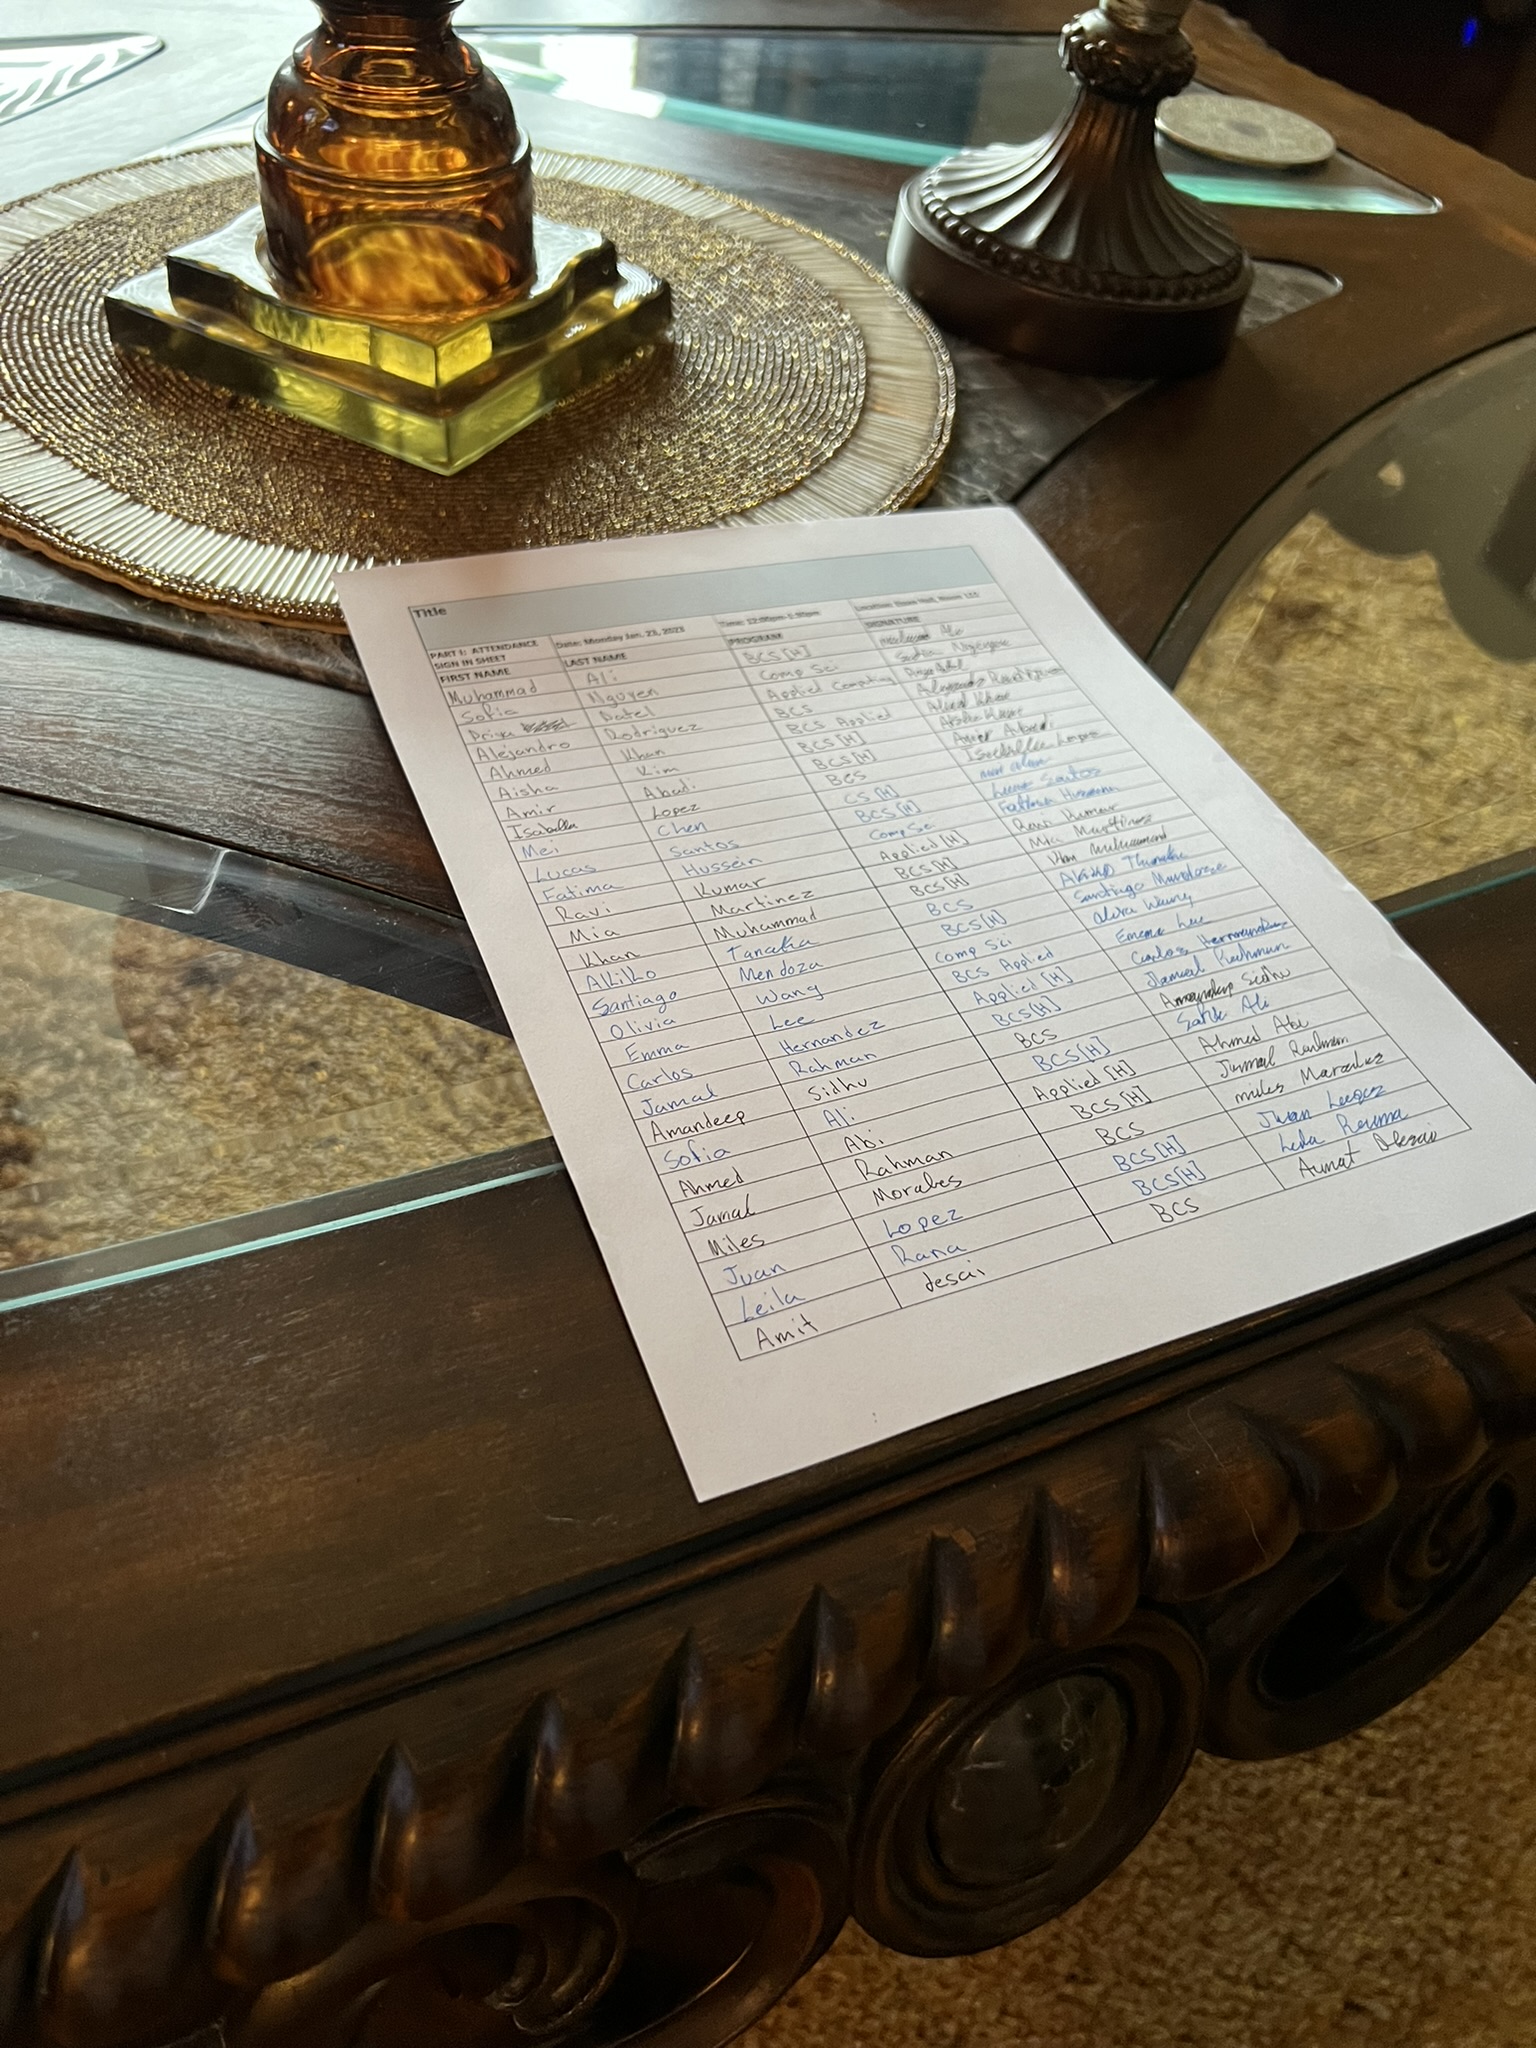 Title
PART I: ATTENDANCE SIGN IN SHEET Date: Monday Jan. 23, 2023 Time: 12:00pm-1:30pm Location:
FIRST NAME LAST NAME PROGRAM SIGNATURE
Muhammad Ali BCS [H] Ali
Sofia Nguyen Comp Sci Sofia Nguyen
Priya Patel Applied Computing
Alejandro Rodriguez BCS Alejandro
Ahmed Khan BCS Applied Ahmed Khan
Aisha Kim BCS [H]
Amir Abadi BCS [H] Amir Abadi
Isabella Lopez BCS Isabella Lopez
Mei Chen CS [H] mei chen
Lucas Santos BCS [H] Lucas Santos
Fatima Hussein Comp Sci Fatima Hussein
Ravi Kumar Applied [H] Ravi Kumar
Mia Martinez BCS [H] Mia Martinez
Khan Muhammad BCS [H] Khan Muhammad
Akiko Tanaka BCS Akiko
Santiago Mendoza BCS[H] Santiago Mendoza
Olivia Wang Comp Sci Olivia Wang
Emma Lee BCS Applied Emma Lee
Carlos Hernandez Applied [H] Carlos Hernandez
Jamal Rahman BCS[H] Jamal Rahman
Amandeep Sidhu BCS Amandeep Sidhu
Sofia Ali BCS[H] Sofia Ali
Ahmed Abi Applied [H] Ahmed Abi
Jamal Rahman BCS [H] Jamal Rahman
Miles Morales BCS miles Morales
Juan Lopez BCS[H] Juan Lopez
Leila Rana BCS[H] Leila
Amit desai BCS